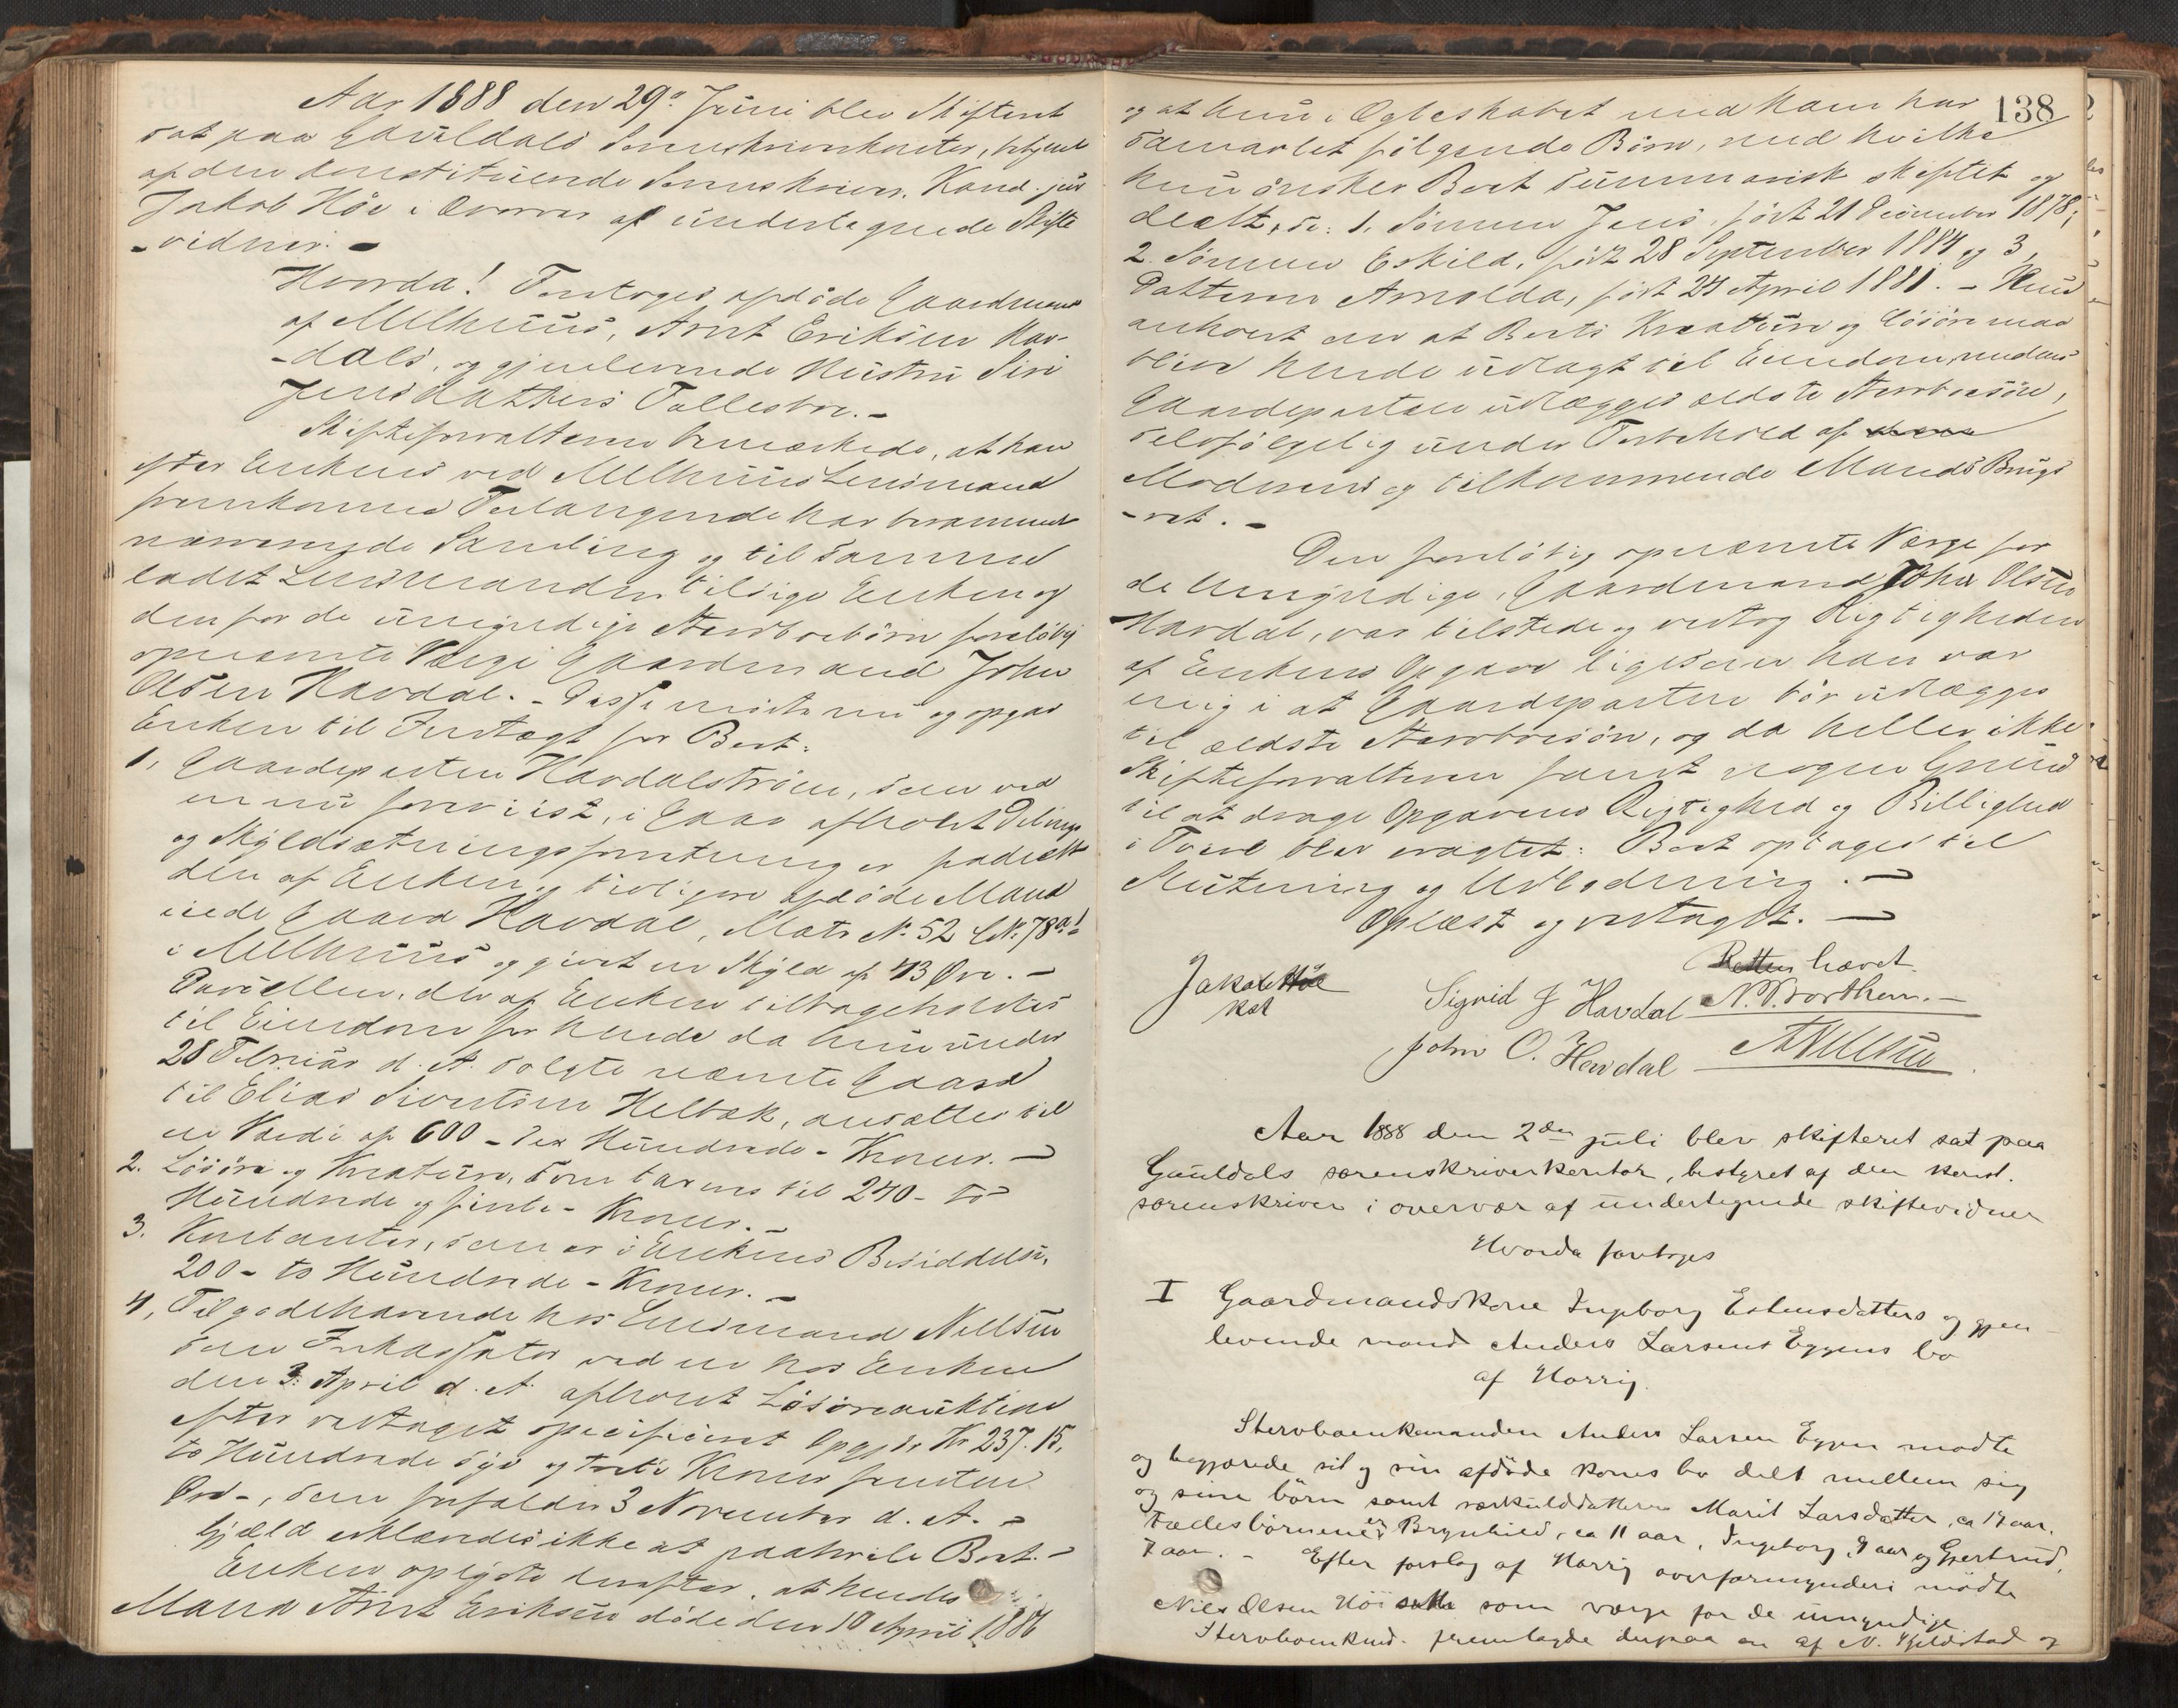 Aar 1888 den 29de Juni blev Skifteret
sat paa Gauldals Sorenskriverkontor, betjent
af den konstituerede Sorenskriver, Kand. jur
Jakob Höe i Overvær af undertegnede Skifte
-vidner. -
Hvorda! Foretoges afdöde Gaardmand
af Melhuus, Arnt Eriksen Hav-
-dals, og gjenlevende Hustru Siri
Jensdatters Fællesbo. -
Skifteforvalteren bemærkede, at han
efter Enkens ved Melhuus Lensmand
fremkomne Forlangende har berammet
nærværende Samling og til samme
ladet Lensmanden tilsige Enken og
den for de umyndige Stervbobörn forelöbig
opnævnte Værge Gaardmand John
Olsen Havdal. - Disse mödte nu og opgav
Enken til Indtægt for Boet:
1, Gaardeparten Havdalströen, som ved
en nu foreviist, i Gaar afholdt Delings
og Skyldsætningsforretning er fradelt
den af Enken og tidligere afdöde Mand
eiede Gaard Havdal, Matr No 52 LNo 78a1
i Melhuus og givet en Skyld af 43 Öre. -
Parcellen, der af Enken tilbageholdtes
til Eiendom for hende da hun under
28 Februar d. A. solgte nævnte Gaard
til Elias Sivertsen Helbæk, ansattes til
en Værdi af 600 - sex Hundrede - Kroner. -
2. Lösöre og Kreature, som taxeres til 240 - to
Hundrede og firti - Kroner. -
3. Kontanter, som er i Enkens Besiddelse,
200 - to Hundrede - Kroner. -
4, Tilgodehavende hos Lensmand Nillsen
som Inkassator ved en hos Enken
den 3. April d. A. afholdt Lösöreauktion
efter vedtaget specificeret Opgjör Kr 237.15,
to Hundrede syv og treti Kroner femten
Öre -, som forfalder 3 November d. A. -
Gjæld erklæredes ikke at paahvile Boet. -
Enken oplyste derefter, at hendes
Mand Arnt Eriksen döde den 10 April 1886
138
og at hun i Ægteskabet med ham har
sammarlet fölgende Börn, med hvilke
hun önsker Boet summarisk skiftet og
deelt, se: 1. Sönnen Jens, födt 21 December 1878,
2. Sönnen Eskild, födt 28 September 1884 og 3,
Datteren Arnolda, födt 24 April 1881. - Hun
anholdt om at Boets Kreature og Lösöre maa
blive hende udlagt til Eiendom, medens
Gaardeparten udlægges ældste Stervbosön,
selvfölgelig under Forbehold af
Moderens og tilkommende Mands Brugs
-ret. -
Den forelöbig opnævnte Værge for
de Umyndige, Gaardmand John Olsen
Havdal, var tilstede og vedtog Rigtigheden
af Enkens Opgave ligesom han var
enig i at Gaardeparten bör udlægges
til ældste Stervbosön, og da heller ikke
Skifteforvalteren fandt nogen Grund
til at drage Opgavens Rigtighed og Billighed
i Tvivl blev eragtet: Boet optages til
Slutning og Udlodning. -
Oplæst og vedtaget. -
Retten hævet.
Jakob Höe
kst
Sigrid J Havdal N. P. Borthen. -
John O. Havdal ANillsen
Aar 1888 den 2den juli blev skifteret sat paa
Gauldals sorenskriverkontor, bestyret af den konst.
sorenskriver i overvær af undertegnede skiftevidner
Hvorda foretoges
I Gaardmandskone Ingeborg Estensdatters og gjen
levende mand Anders Larsens Eggens bo
af Horrig.
Stervboenkemanden Anders Larsen Eggen mødte
og begjærede sit og sin afdøde kones bo delt mellem sig
og sine börn samt særkulddatteren Marit Larsdatter, ca 19 aar.
Fælesbörnene er Brynhild, ca 11 aar, Ingeborg, 9 aar og Gjertrud,
7 aar. - Efter forslag af Horrig overformynderi mødte
Nils Olsen Höi som værge for de umyndige
Stervboenkmd. fremlagde derpaa en af N. Gjeldstad og